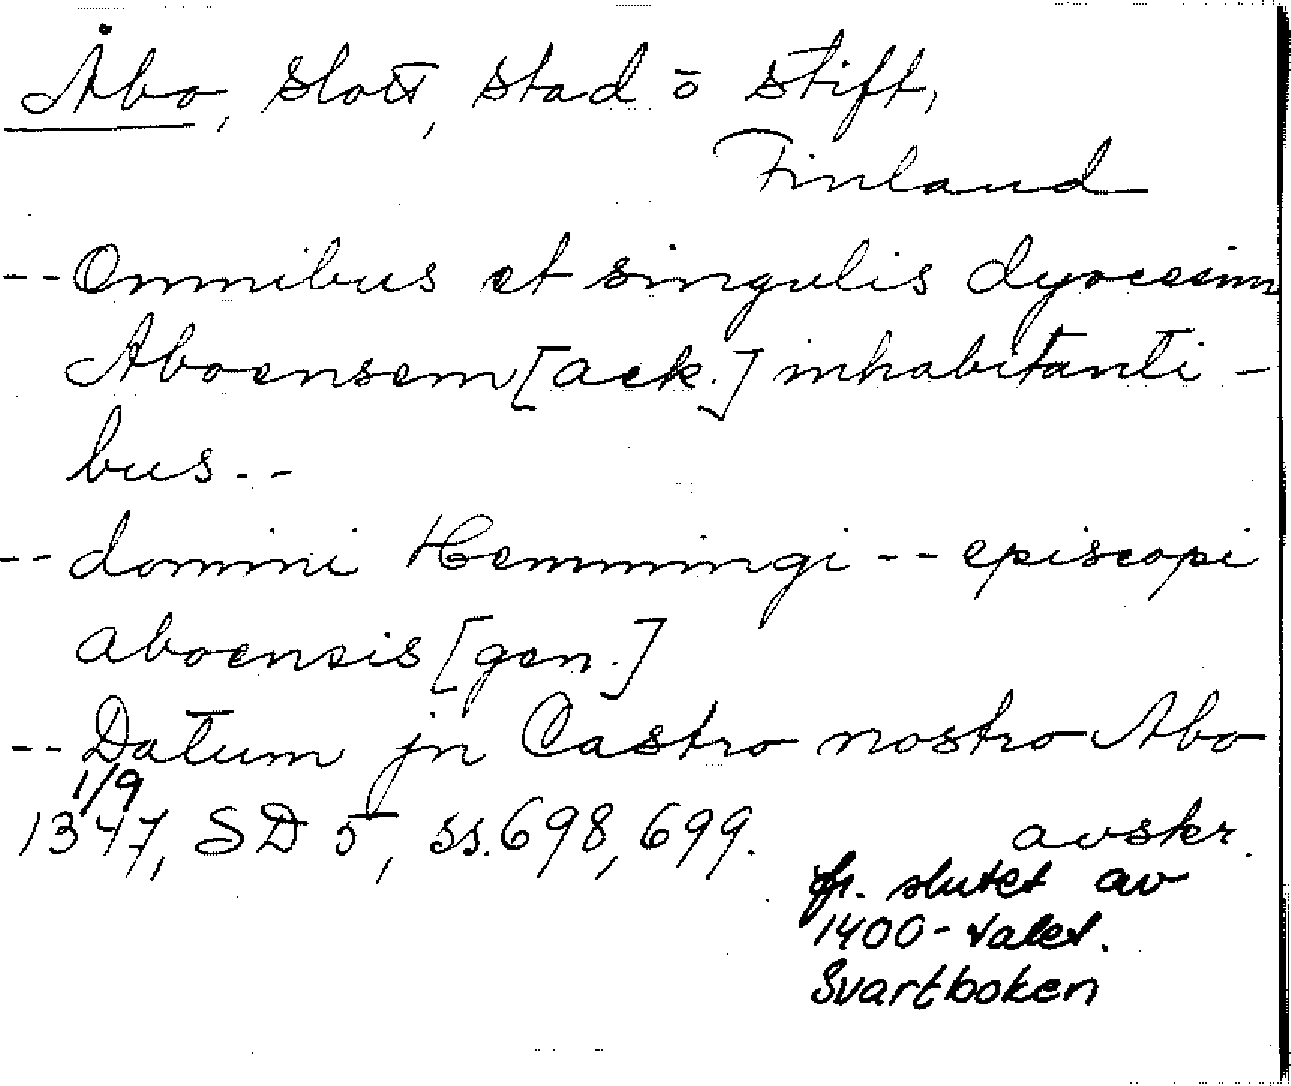 Åbo, slott, stad o stift,
Finland
-- Omnibus et singulis dyocesim
Aboensem [ack.] inhabitanti-
bus --
-- domini Hemmingi -- episcopi
aboensis [gen.]
-- Datum jn Castro nostro Abo
1/9
1347, SD 5, ss. 698, 699. avskr.
fr. slutet av
1400-talet.
Svartboken